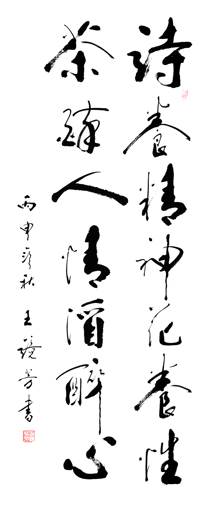 詩養精神花養性
茶人情酒醉心
丙申秋王芳書